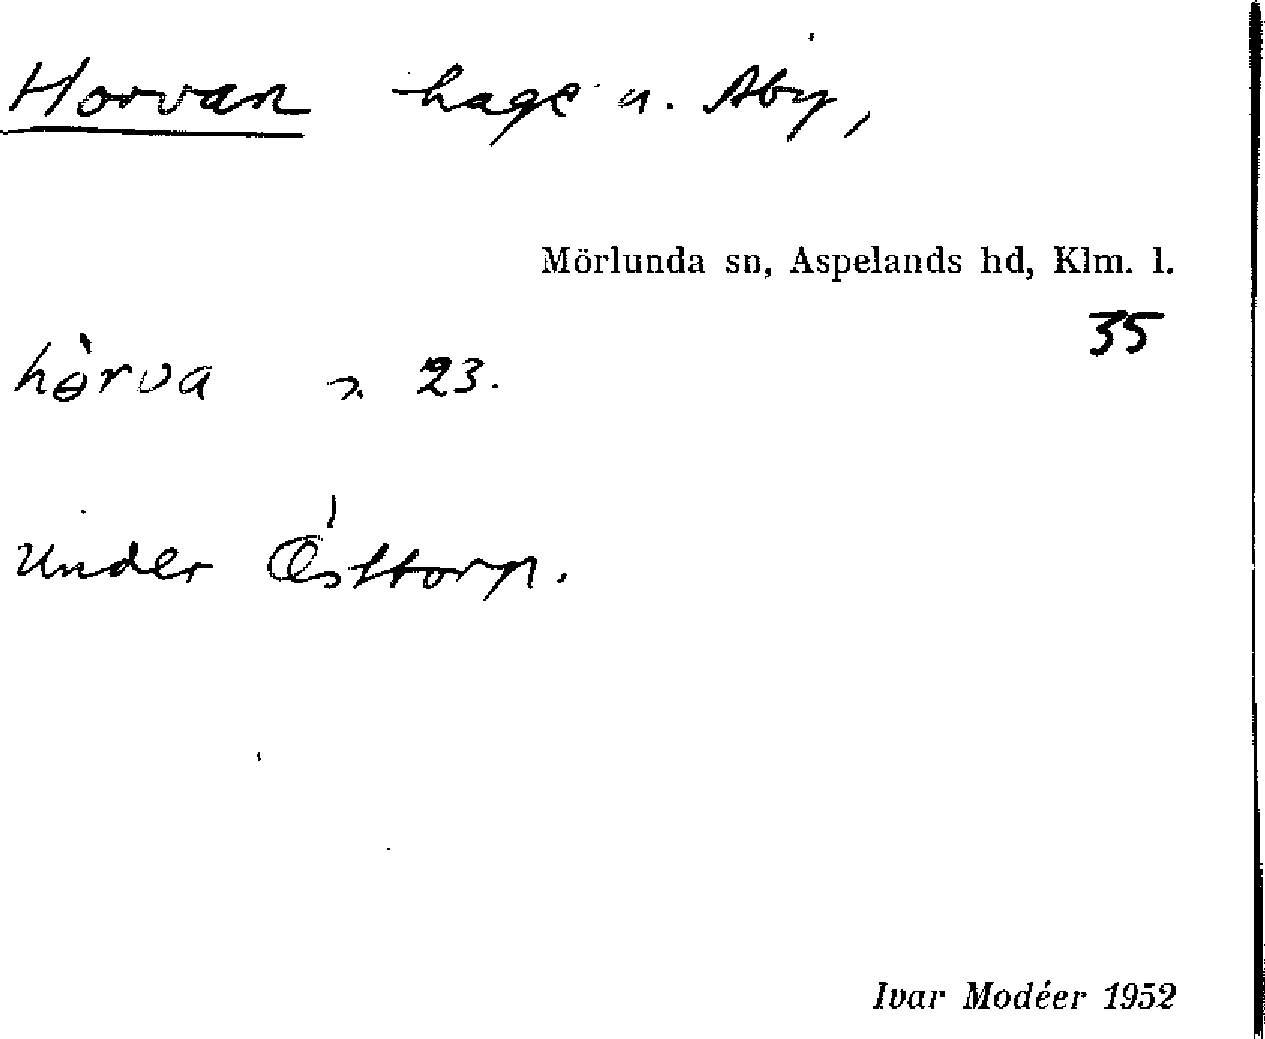 Horvan hage u. Åby,
Mörlunda sn, Aspelands hd, Klm. l.
35
hèrva 23.
Under Östtorp.
Ivar Modéer 1952